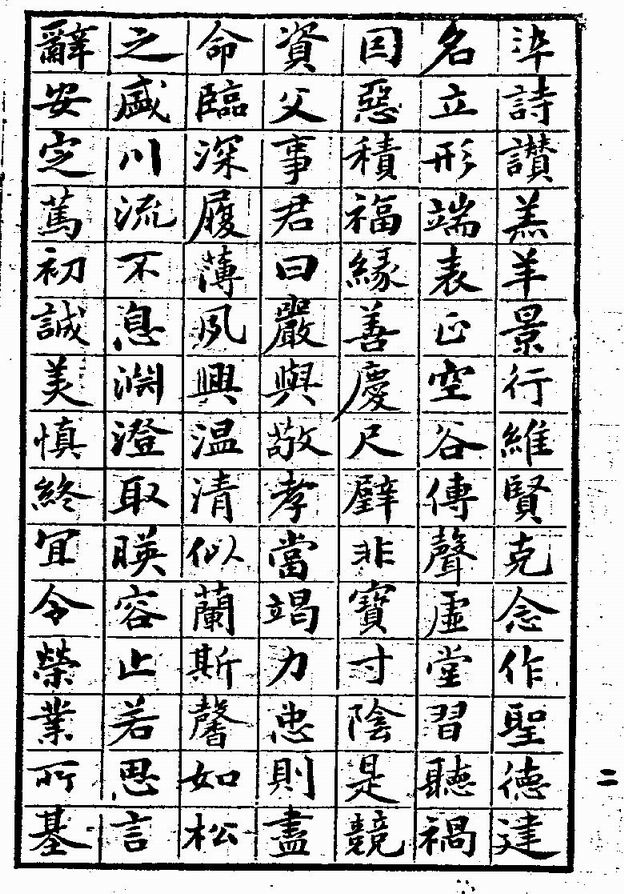 染詩讚羔羊景行維賢克念作聖德建
名立形端表正空谷傳聲虛堂習聽禍
因惡積福緣善慶尺璧非寶寸陰是競
資父事君曰嚴與敬孝當竭力忠則盡
命臨深履薄夙興温清似蘭斯馨如松
之盛川流不息淵澄取暎容止若思言
辭安定篤初誠美慎終宜令榮業所基
二